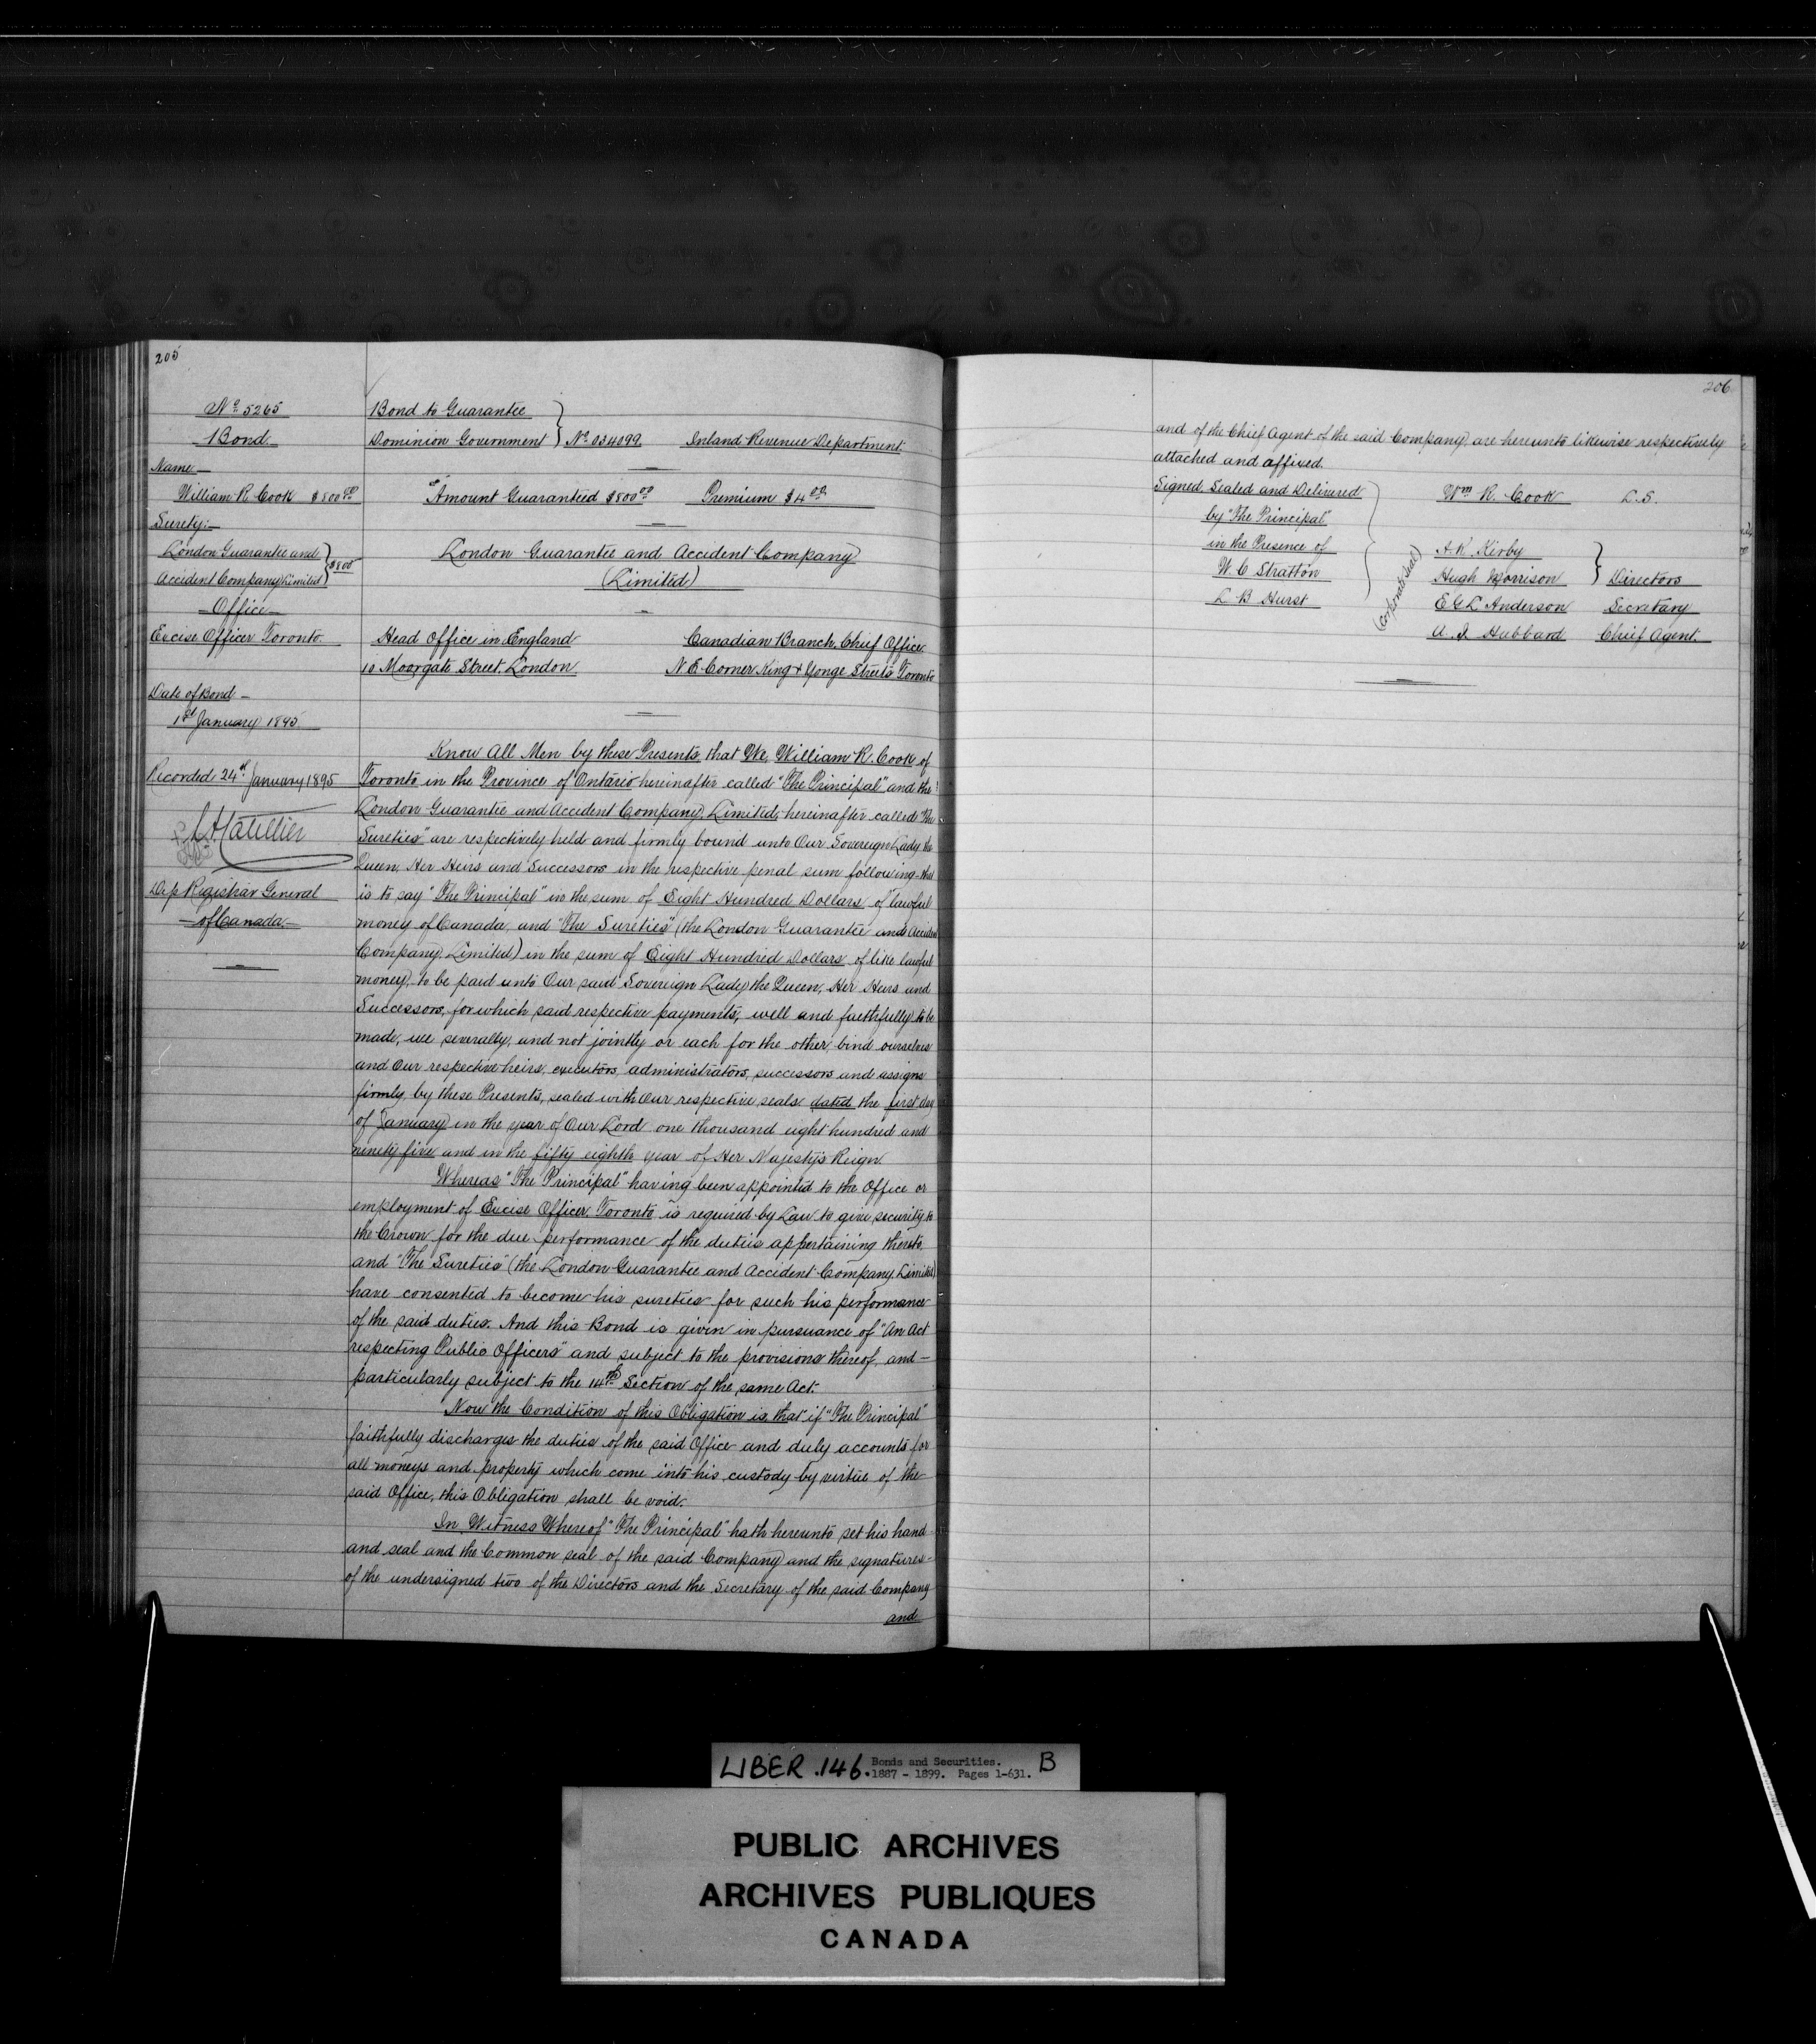 205
No 5265
Bond
Name
William R. Cook $800 00
Surety:
London Guarantee and
Accident Company Limited } $800
Office
Excise Officer Toronto.
Date of Bond
1st January 1895
Recorded 24th January 1895
Dep Registrar General
of Canada.
Bond to Guarantee
Dominion Government } No 034099. Inland Revenue Department.
Amount Guaranteed $800 00 Premium $4 00
London Guarantee and Accident Company
(Limited)
Head Office in England Canadian Branch, Chief Office
10 Moorgate Street, London. N. E. Corner King & Yonge Streets Toronto
Know All Men by these Presents, that We, William R. Cook of
Toronto in the Province of Ontario hereinafter called "The Principal" and the
London Guarantee and Accident Company, Limited, hereinafter called "The
Sureties" are respectively held and firmly bound unto Our Sovereign Lady the
Queen, Her Heirs and Successors in the respective penal sum following, that
is to say "The Principal" in the sum of Eight Hundred Dollars of lawful
money of Canada, and "The Sureties" (the London Guarantee and Accident
Company, Limited) in the sum of Eight Hundred Dollars of like lawful
money, to be paid unto Our said Sovereign Lady the Queen, Her Heirs and
Successors, for which said respective payments, well and faithfully to be
made, we severally, and not jointly or each for the other, bind ourselves
and Our respective heirs, executors, administrators, successors and assigns
firmly by these Presents, sealed with Our respective seals dated the first day
of January in the year of Our Lord one thousand eight hundred and
ninety five and in the fifty eighth year of Her Majesty's Reign.
Whereas "The Principal" having been appointed to the Office or
employment of Excise Officer, Toronto is required by Law to give security to
the Crown for the due performance of the duties appertaining thereto,
and "The Sureties" (the London Guarantee and Accident Company, Limited)
have consented to become his sureties for such his performance
of the said duties. And this Bond is given in pursuance of "An Act
respecting Public Officers" and subject to the provisions thereof, and
particularly subject to the 14th Section of the same Act.
Now the Condition of this Obligation is, that if "The Principal"
faithfully discharges the duties of the said Office and duly accounts for
all moneys and property which come into his custody by virtue of the
said Office, this Obligation shall be void.
In Witness Whereof "The Principal" hath hereunto set his hand
and seal and the Common seal of the said Company and the signatures
of the undersigned two of the Directors and the Secretary of the said Company
and
206
and of the Chief Agent of the said Company, are hereunto likewise respectively
attached and affixed.
Signed, Sealed and Delivered Wm R. Cook L.S.
by "The Principal"
in the Presence of A. K. Kirby
W. C Stratton Hugh Morrison } Directors
L B Hurst E G L Anderson Secretary
(Corporate Seal) A. I. Hubbard Chief Agent.
LIBER .146. Bonds and Securities. 1887 - 1899. Pages 1-631. B
PUBLIC ARCHIVES
ARCHIVES PUBLIQUES
CANADA